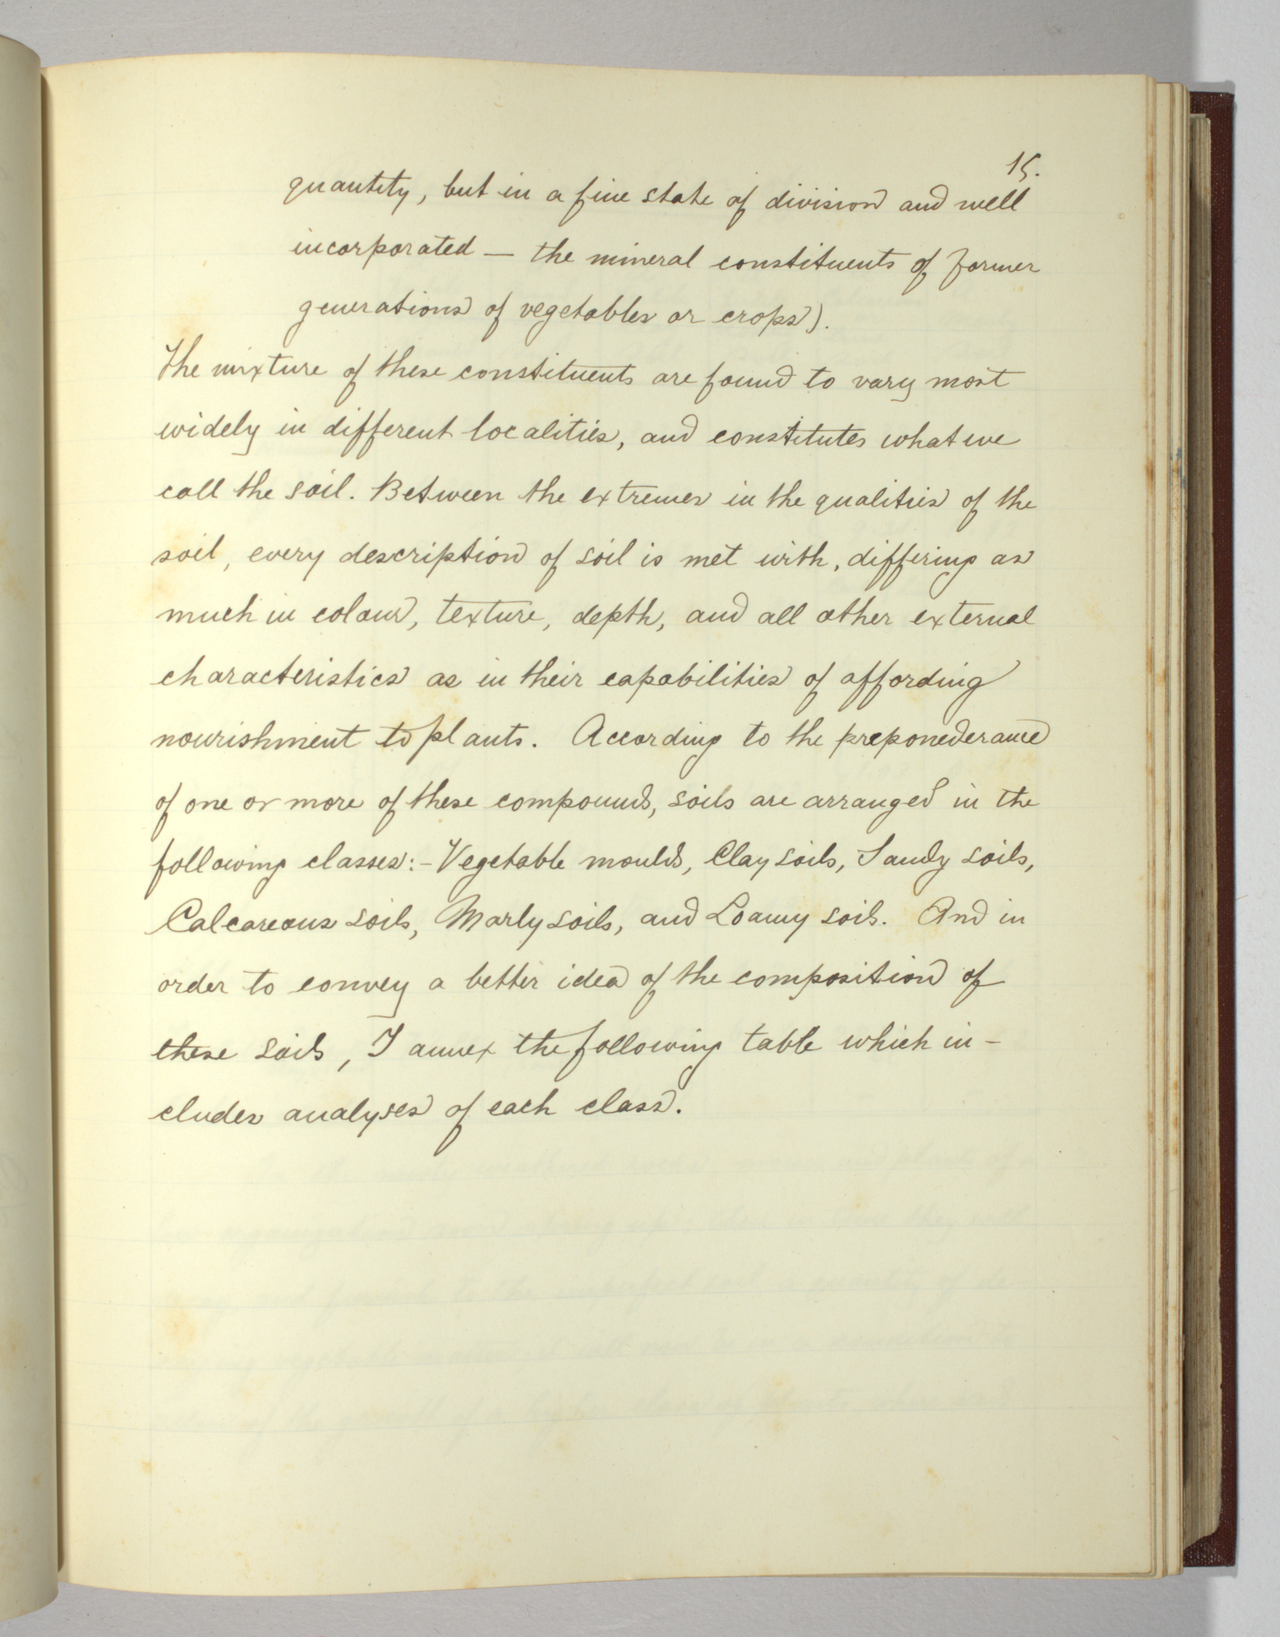 15.
quantity, but in a fine state of division and well
incorporated — the mineral constituents of former
generations of vegetables or crops).
The mixture of these constituents are found to vary most
widely in different localities, and constitutes what we
call the soil. Between the extremes in the qualities of the
soil, every description of soil is met with, differing as
much in colour, texture, depth, and all other external
characteristics as in their capabilities of affording
nourishment to plants. According to the preponederance
of one or more of these compounds, soils are arranged in the
following classes:- Vegetable moulds, Clay soils, Sandy soils,
Calcareous soils, Marly soils, and Loamy soils. And in
order to convey a better idea of the composition of
these soils, I annex the following table which in-
cludes analyses of each class.